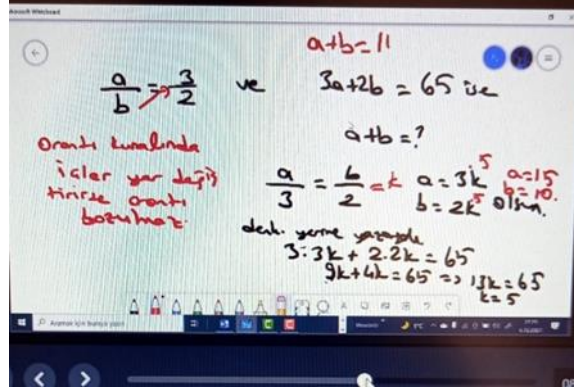 Microsoft Whiteboard
a+b=11
a/b = 3/2 ve 3a+2b = 65 ise
a+b=?
Orantı kuralında
içler yer değiş
tirirse orantı
bozulmaz.
a/3 = b/2 = k a = 3k 5 a=15
b = 2k 5 olsun. b=10.
denk. yerine yazarsak
3.3k + 2.2k = 65
9k+4k = 65 => 13k = 65
k=5